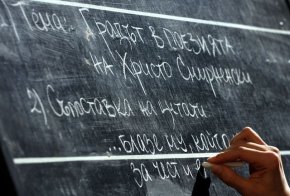 1) Тема: Градът в поезията
на Христо Смирненски
2) Съпоставка на цитати:
...блазе му, който
за чест и